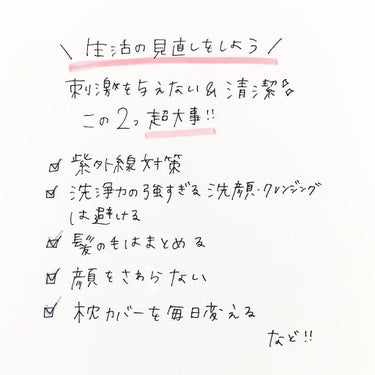 \ 生活の見直しをしよう /
刺激を与えない & 清潔☆
この2つ超大事!!
☑ 紫外線対策
☑ 洗浄力の強すぎる洗顔・クレンジング
は避ける
☑ 髪の毛はまとめる
☑ 顔をさわらない
☑ 枕カバーを毎日変える
など!!